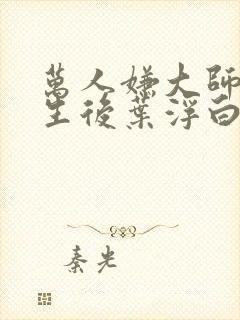 萬人嫌大師
生後葉浮白
秦光